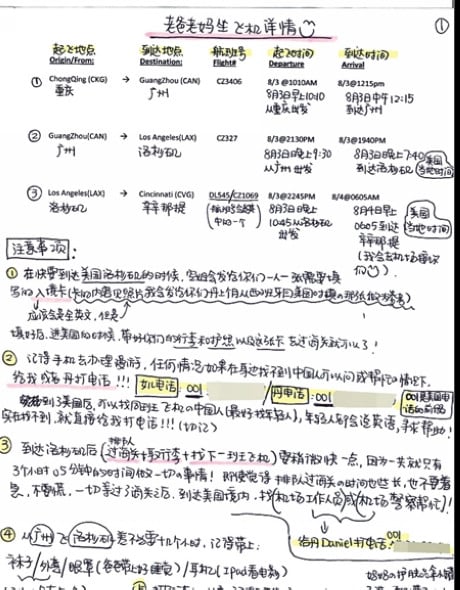 老爸老妈坐飞机详情
①
起飞地点 到达地点 航班号 起飞时间 到达时间
Origin/From: Destination: Flight# Departure Arrival
① ChongQing (CKG) → GuangZhou (CAN) CZ3406 8/3 @1010AM 8/3@1215pm
重庆 广州 8月3日早上10:10 8月3日中午12:15
从重庆出发 到达广州
② GuangZhou(CAN) → Los Angeles(LAX) CZ327 8/3@2130PM 8/3@1940PM
广州 洛杉矶 8月3日晚上9:30 8月3日晚上7:40 美国
从广州出发 到达洛杉矶 当地时间
③ Los Angeles(LAX) → Cincinnati (CVG) DL545/CZ1069 8/3@2245PM 8/4@0605AM
洛杉矶 辛辛那提 8月3日晚上 8月4日早上 美国
中的一个 10:45从洛杉矶 0605到达 当地时间
出发 辛辛那提
(我会去机场接你
们)
注意事项:
① 在快要到达美国洛杉矶的时候,空姐会发给你们一人一张需要填
写的入境卡
应该是全英文,但是
填好后,进美国的时候,带好你们的行李和护照以及这张卡去过海关就可以了!
② 记得手机去办理漫游,任何情况如果在身边找不到中国人可以问或帮忙的情况下,
给我或者丹打电话!!! 如电话: 001 / 丹电话: 001 001是美国电
话的前缀
到了美国后,可以找同班飞机的中国人(最好找年轻人),年轻人都会说英语,寻求帮助!
实在找不到,就直接给我打电话!!! (切记)
③ 到达洛杉矶后(过海关+取行李+找下一班飞机)要稍微快一点,因为一共就只有
排队
3个小时05分钟的时间做这一切的事情! 即使觉得排队过海关的时间也些长,也不要着
急,不要慌,一切等过了海关之后,到达美国境内,找(机场工作人员)或(机场警察帮忙)!
给丹Daniel打电话: 001
④ 从广州飞洛杉矶差不多要十几个小时,记得带上:
袜子/外套/眼罩(爸爸带上好睡觉)/耳机(Ipad看电影)